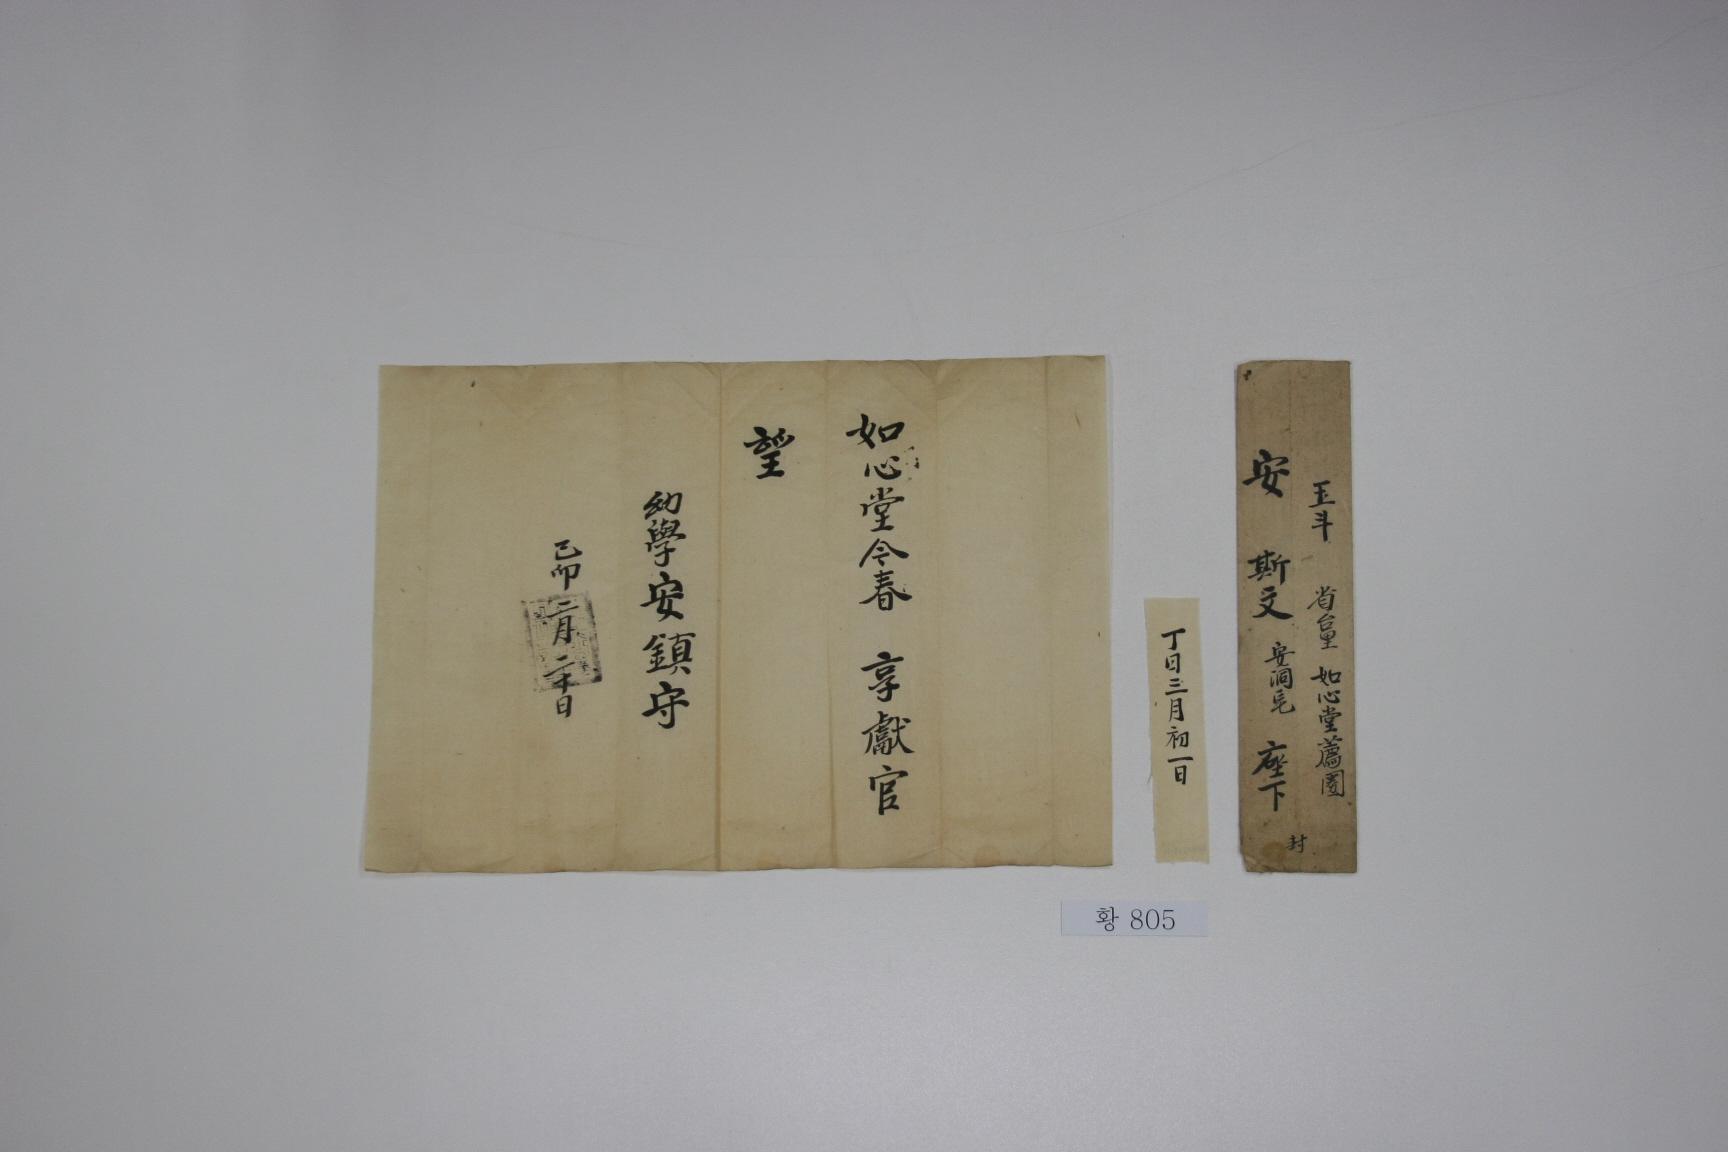 如心堂今春 享獻官
望
幼學安鎮守
己卯二月二十日
丁日三月初一日
玉斗 省 如心堂薦圈
安 斯文 安洞宅 座下
封
황 805